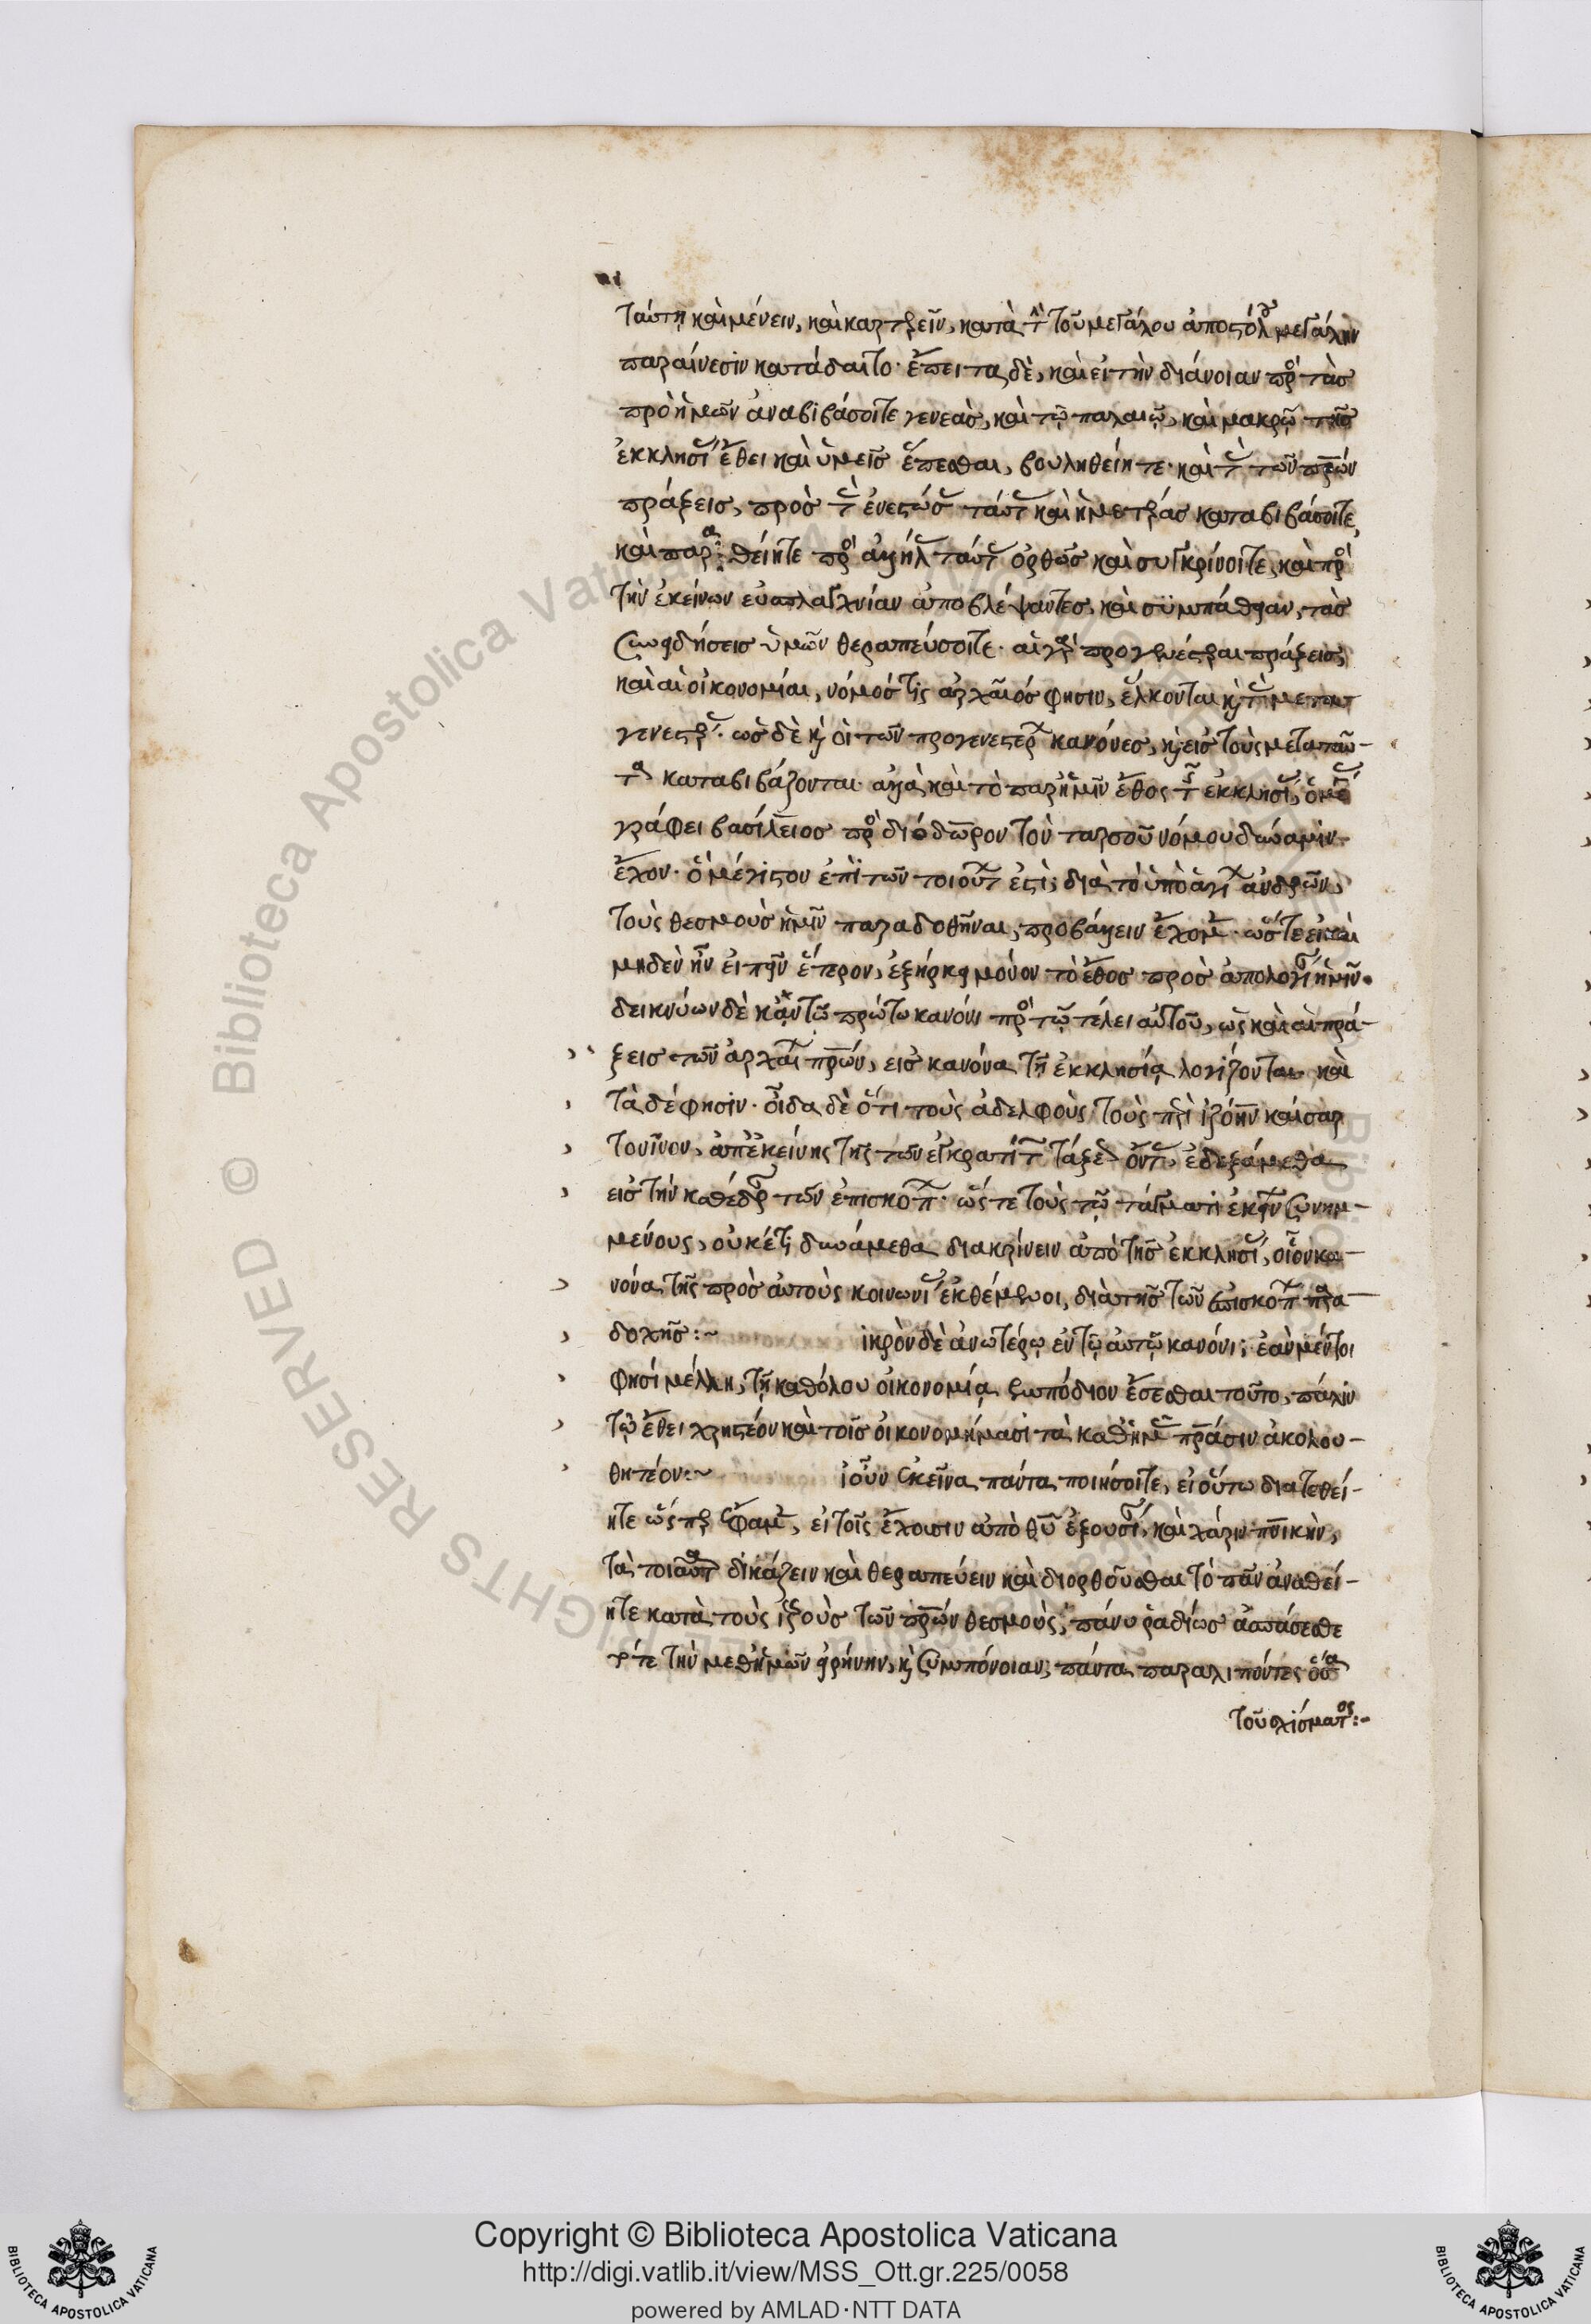 ταύτη καὶ μένειν, καὶ καρτερεῖν, κατὰ τὴν τοῦ μεγάλου ἀποστόλου μεγάλην
παραίνεσιν κατάδαιτο· ἔπειτα δὲ, καὶ εἰ τὴν διάνοιαν πρὸς τὰσ
πρὸ ἡμῶν ἀναβιβάσοιτε γενεὰσ, καὶ τῷ παλαιῷ, καὶ μακρῷ τῆσ
ἐκκλησίας ἔθει καὶ ὑμεῖσ ἕπεσθαι, βουληθείητε· καὶ τὰς τῶν πρων
πράξεισ, πρὸσ τὰς ἐνεστώσας ταύτας καὶ ἡμετέρασ καταβιβάσοιτε,
καὶ παρα θείητε πρὸς ἀλλήλας ταύτας ὀρθῶσ καὶ συγκρίνοιτε, καὶ πρὸς
τὴν ἐκείνων εὐσπλαγχνίαν ἀποβλέψαντεσ, καὶ συμπάθειαν, τὰσ
συνειδήσεισ ὑμῶν θεραπεύσοιτε· αἱ γὰρ προγενέστεραι πράξεισ,
καὶ αἱ οἰκονομίαι, νόμοσ τίς ἀρχαῖόσ φησιν, ἕλκονται καὶ τὰς μετα
γενεστέρας· ὡσ δὲ καὶ οἱ τῶν προγενεστέρων κανόνεσ, καὶ εἰσ τοὺς μεταταῦ-
τα καταβιβάζονται· ἀλλὰ καὶ τὸ παρ' ἡμῖν ἔθος τῆς ἐκκλησίας,
γράφει βασίλειοσ πρὸς διόδωρον τὸν ταρσοῦ νόμου δύναμιν
ἔχον· ὃ μέγιστον ἐπὶ τῶν τοιούτων ἐστὶ; διὰ τὸ ὑπὸ ἁγίων ἀνδρῶν,
τοὺς θεσμοὺσ ἡμῖν παραδοθῆναι, προβάλλειν ἔχομεν· ὥστε εἰ καὶ
μηδὲν ἦν εἰπεῖν ἕτερον, ἐξήρκει μόνον τὸ ἔθοσ πρὸσ ἀπολογίαν ἡμῖν.
δεικνύων δὲ κἀν τῶ πρώτω κανόνι πρὸς τῷ τέλει αὐτοῦ, ὡς καὶ αἱ πρά-
ξεισ τῶν ἀρχαίων πρων, εἰσ κανόνα τῇ ἐκκλησίᾳ λογίζονται καὶ
τὰ δέ φησίν· οἶδα δὲ ὅτι τοὺς ἀδελφοὺς τοὺς περὶ ἰζόην καὶ σαρ
τουῖνον, ἀπ' ἐκείνης τῆς τῶν ἐγκρατιτῶν τάξεως ὄντας, ἐδεξάμεθα
εἰσ τὴν καθέδραν τῶν ἐπισκόπων· ὥστε τοὺς τῷ τάγματι ἐκείνων συνημ-
μένους, οὐκέτι δυνάμεθα διακρίνειν ἀπὸ τῆσ ἐκκλησίας, οἷον κα-
νόνα τῆς πρὸσ αὐτοὺς κοινωνίας ἐκθέμενοι, διὰ τῆσ τῶν ἐπισκόπων παρα-
δοχῆσ:~ ικρὸν δὲ ἀνωτέρω ἐν τῷ αὐτῷ κανόνι; ἐὰν μέντοι
φησὶ μέλλη, τῇ καθόλου οἰκονομίᾳ ἐμπόδιον ἔσεσθαι τοῦτο, πάλιν
τῷ ἔθει χρηστέον καὶ τοῖσ οἰκονομήσασι τὰ καθ' ἡμᾶς πράσιν ἀκολου-
θητέον:~ ἰοῦν κεῖνα πάντα ποιήσοιτε, εἰ οὕτω διατεθεί-
ητε ὥσπερ ἔφαμεν, εἰ τοῖς ἔχουσιν ἀπὸ θυ ἐξουσίαν, καὶ χάριν πνικὴν,
τὰ τοιαῦτα δικάζειν καὶ θεραπεύειν καὶ διορθοῦσθαι τὸ πᾶν ἀναθεί-
ητε κατὰ τοὺς ἱεροὺσ τῶν πρων θεσμοὺς; πάνυ ῥαδίωσ ἀσπάσεσθε
τότε τὴν μεθ' ἡμῶν εἰρήνην, καὶ συμπόνοιαν; πάντα παραλιπόντες ὅσα
τοῦ σχίσματος:-
Copyright © Biblioteca Apostolica Vaticana
http://digi.vatlib.it/view/MSS_Ott.gr.225/0058
powered by AMLAD·NTT DATA